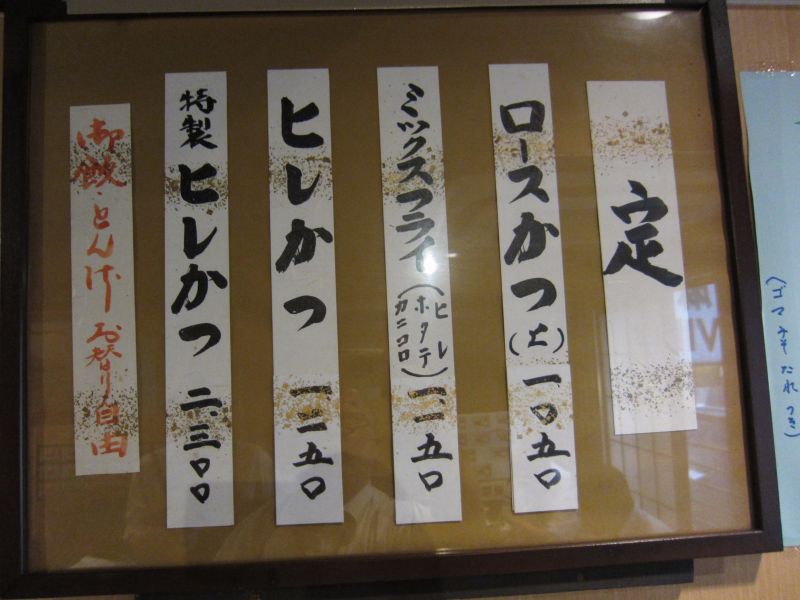 定
ロースかつ(上) 一〇五〇
ミックスフライ(ヒレ ホタテ カニコロ) 一一五〇
ヒレかつ 一二五〇
特製ヒレかつ 二、三〇〇
御飯・とん汁 お替り自由
(ゴマみそたれつき)